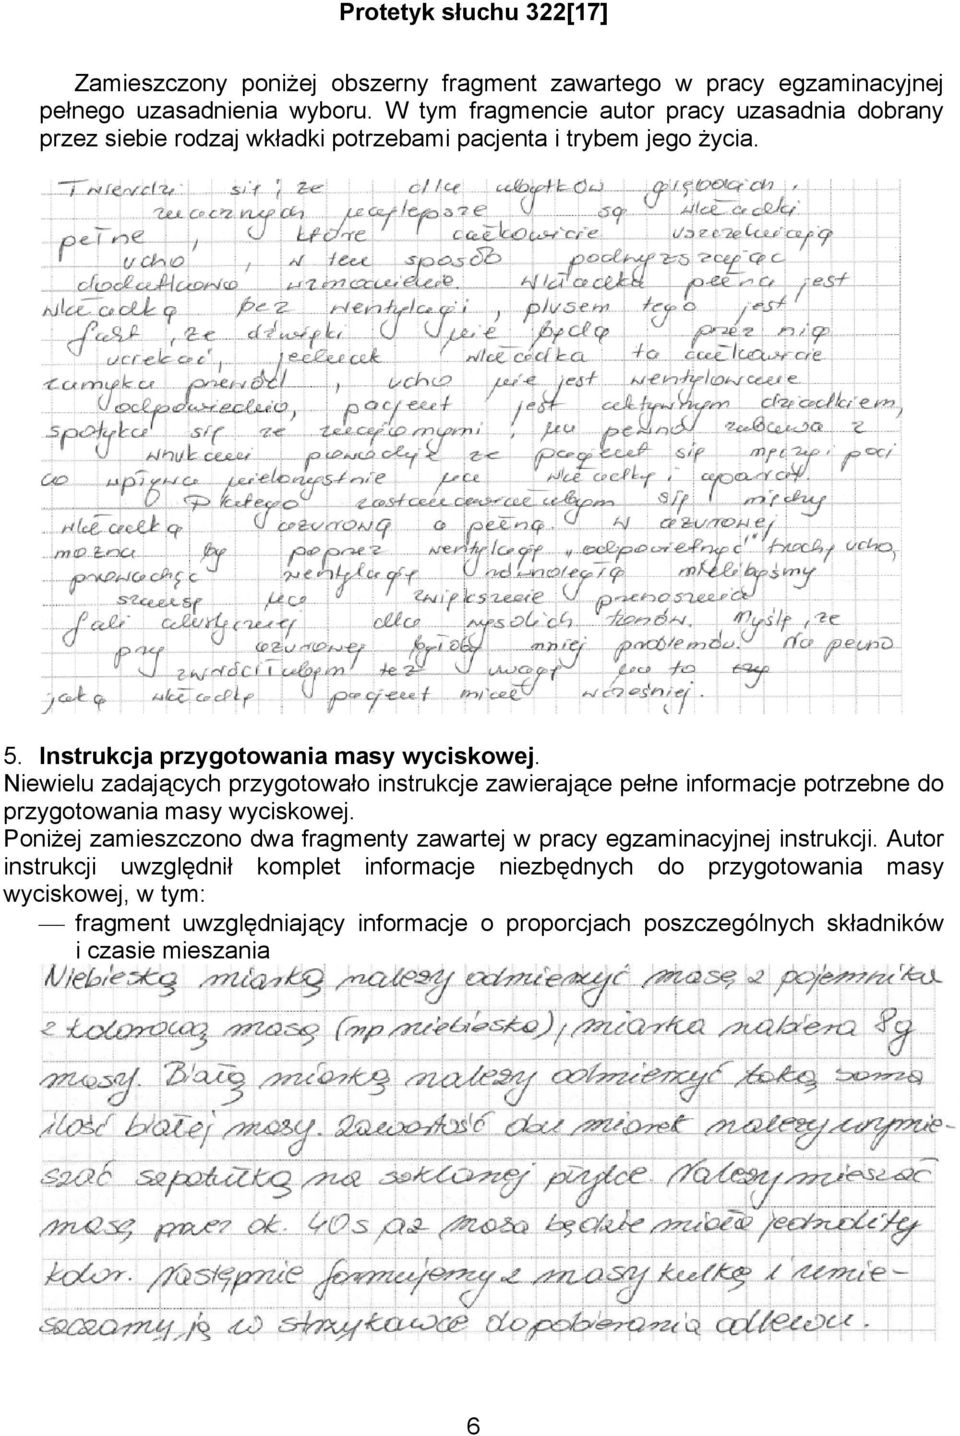 Protetyk słuchu 322[17]
Zamieszczony poniżej obszerny fragment zawartego w pracy egzaminacyjnej
pełnego uzasadnienia wyboru. W tym fragmencie autor pracy uzasadnia dobrany
przez siebie rodzaj wkładki potrzebami pacjenta i trybem jego życia.
Twierdzi się, że dla ubytków głębokich,
znacznych najlepsze są wkładki
pełne, które całkowicie uszczelniają
ucho, w ten sposób podwyższając
dodatkowo wzmocnienie. Wkładka pełna jest
wkładką bez wentylacji, plusem tego jest
fakt, że dźwięki nie będą przez nią
uciekać, jednak wkładka ta całkowicie
zamyka przewód, ucho nie jest wentylowane
odpowiednio, pacjent jest aktywnym dziadkiem,
spotyka się ze znajomymi, na pewno zabawa z
wnukami powoduje że pacjent się męczy i poci
co wpływa niekorzystnie na wkładkę i aparat.
Dlatego zastanawiałabym się między
wkładką ażurową a pełną. W ażurowej
można by poprzez wentylację „odpowietrzyć" trochę ucho,
prowadząc wentylację równoległą mielibyśmy
szansę na zwiększenie przenoszenia
fali akustycznej dla wysokich tonów. Myślę, że
przy ażurowej byłoby mniej problemów. Na pewno
zwróciłabym też uwagę na to
jaką wkładkę pacjent miał wcześniej.
5. Instrukcja przygotowania masy wyciskowej.
Niewielu zadających przygotowało instrukcje zawierające pełne informacje potrzebne do
przygotowania masy wyciskowej.
Poniżej zamieszczono dwa fragmenty zawartej w pracy egzaminacyjnej instrukcji. Autor
instrukcji uwzględnił komplet informacje niezbędnych do przygotowania masy
wyciskowej, w tym:
— fragment uwzględniający informacje o proporcjach poszczególnych składników
i czasie mieszania
Niebieską miarką należy odmierzyć masę z pojemnika
z kolorową masą (np niebieska), miarka nabiera 8g
masy. Białą miarką należy odmierzyć taką samą
ilość białej masy. Zawartość dwu miarek należy wymie-
szać szpatułką na szklanej płytce. Należy mieszać
masę przez ok. 40s aż masa będzie miała jednolity
kolor. Następnie formujemy z masy kulkę i umie-
szczamy ją w strzykawce do pobierania odlewu.
6